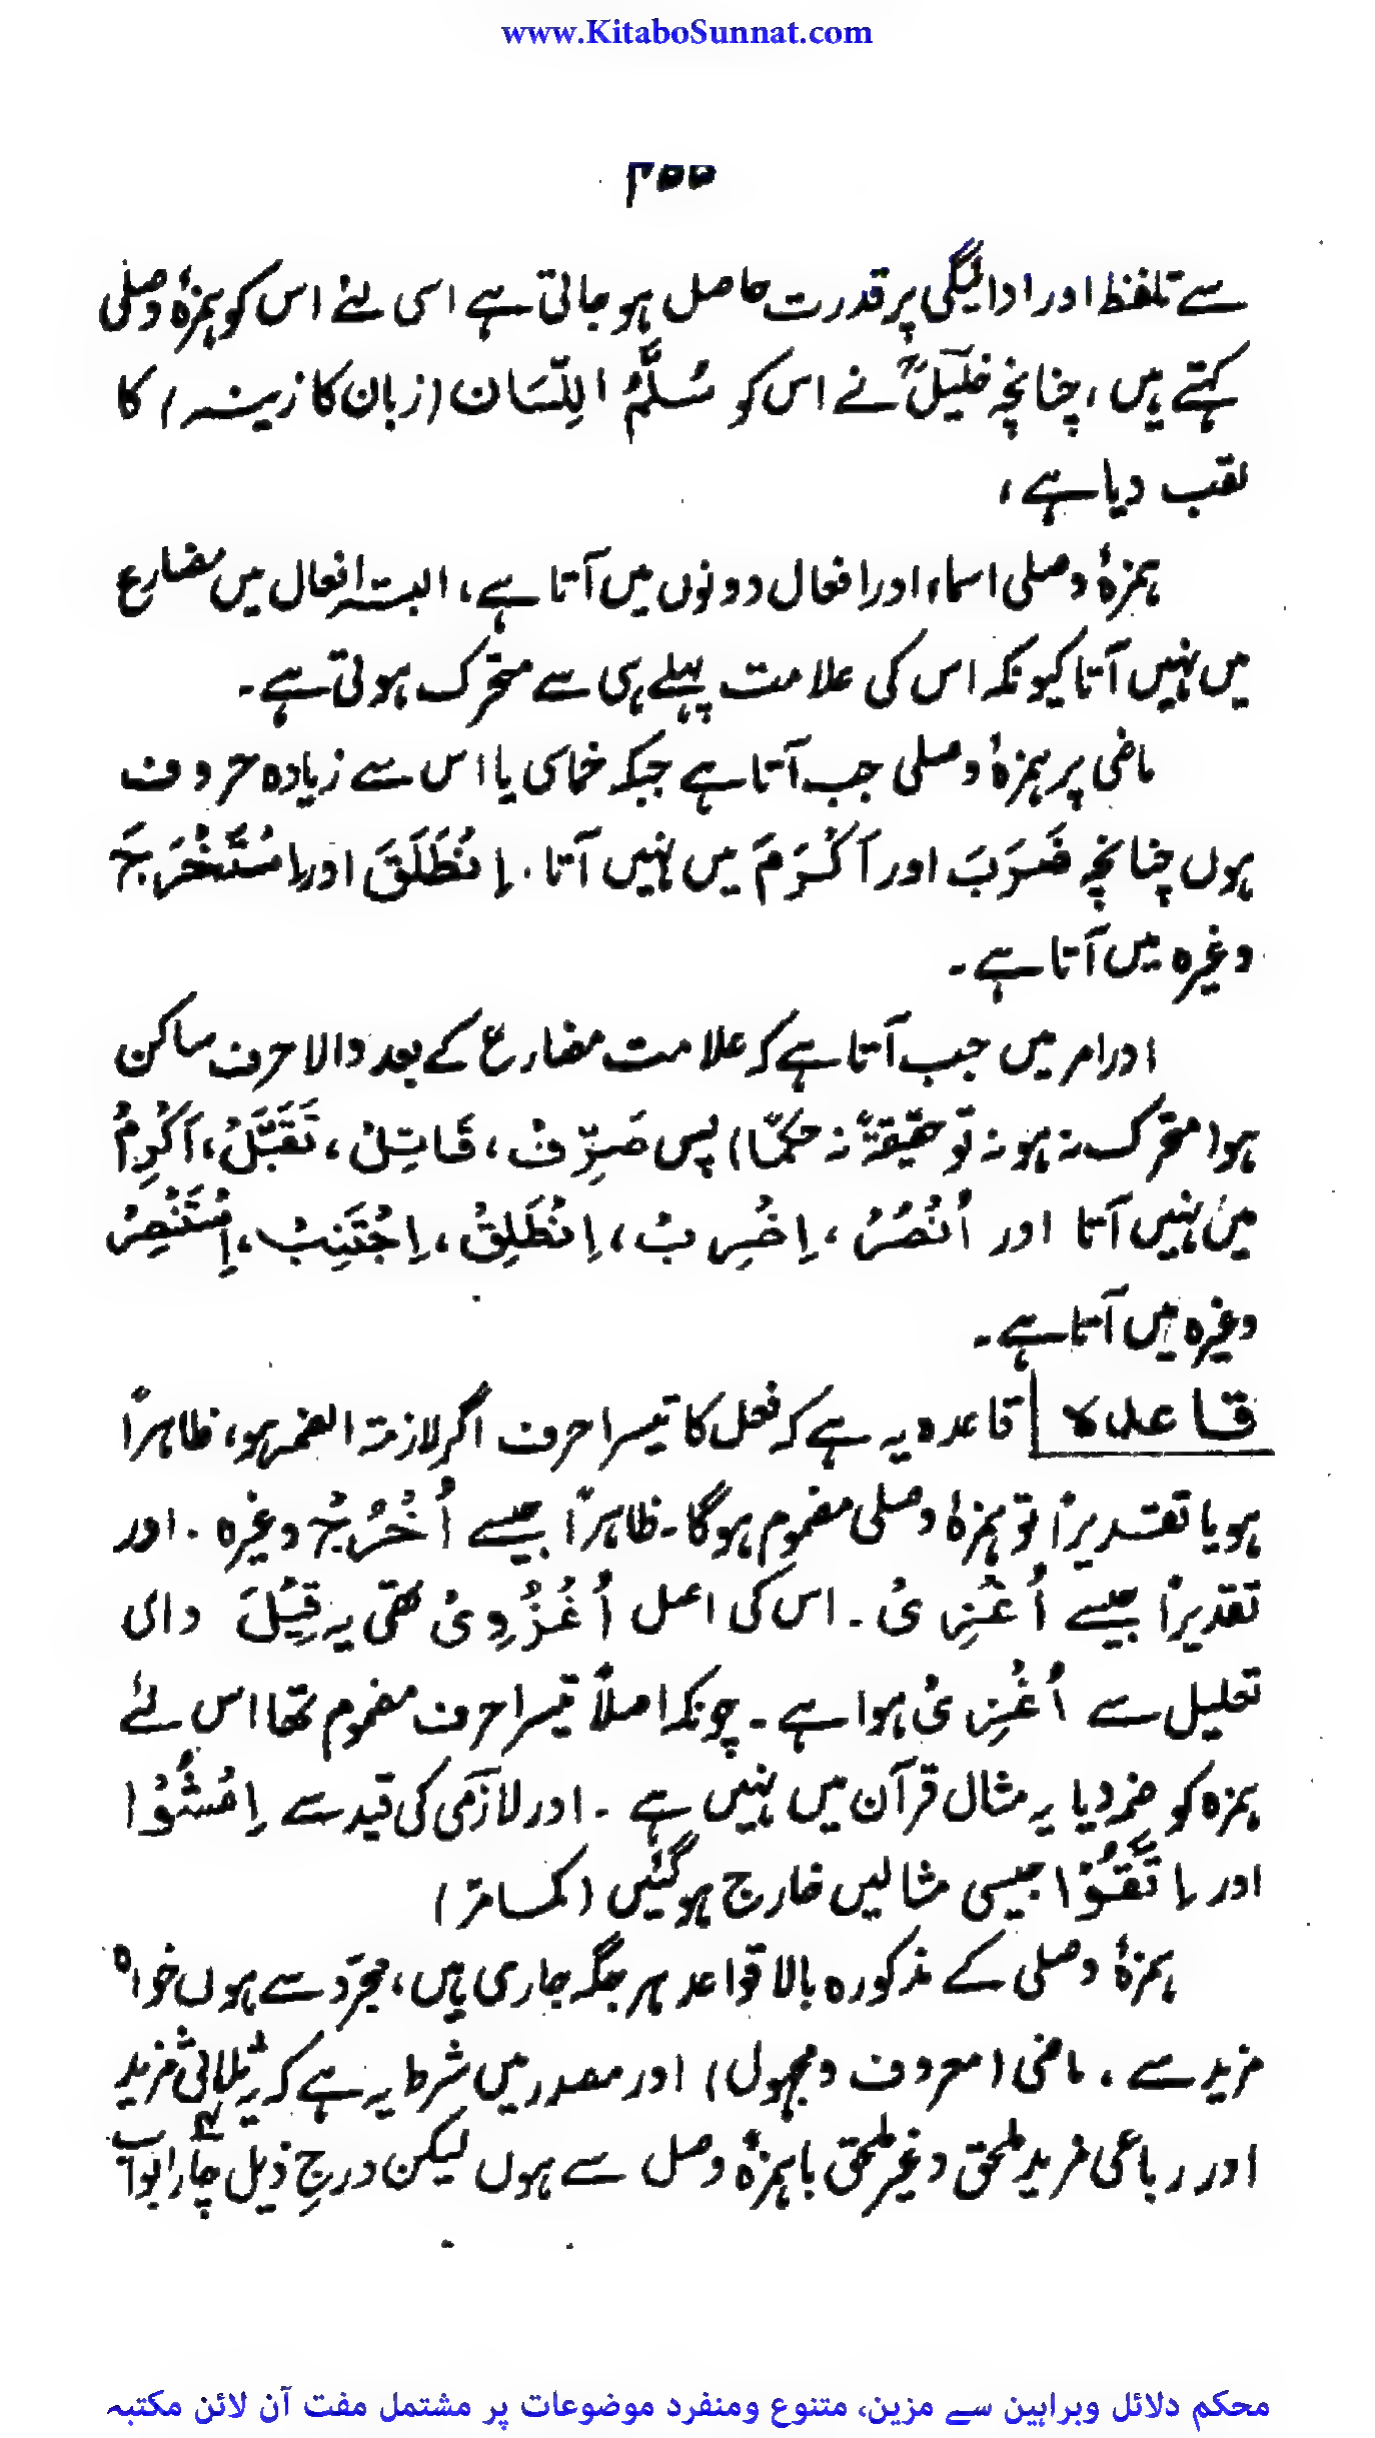 www.KitaboSunnat.com
۲۰۰
سے تلفظ اور ادائیگی پر قدرت حاصل ہو جاتی ہے اسی لئے اس کو ہمزۂ وصلی
کہتے ہیں، چنانچہ خلیلؒ نے اس کو سُلَّمُ اللِّسَان (زبان کا زینہ) کا
لقب دیا ہے،
ہمزۂ وصلی اسماء اور افعال دونوں میں آتا ہے، البتہ افعال میں مضارع
میں نہیں آتا کیونکہ اس کی علامت پہلے ہی سے متحرک ہوتی ہے۔
ماضی پر ہمزۂ وصلی جب آتا ہے جبکہ خماسی یا اس سے زیادہ حروف
ہوں چنانچہ ضَرَبَ اور اَکْرَمَ میں نہیں آتا۔ اِنْطَلَقَ اور اِسْتَخْرَجَ
وغیرہ میں آتا ہے۔
اور امر میں جب آتا ہے کہ علامت مضارع کے بعد والا حرف ساکن
ہو (متحرک نہ ہو نہ تو حقیقۃً نہ حکمًا) پس صَرِّفْ، قَاتِلْ، تَقَبَّلْ، اَکْرِمْ
میں نہیں آتا اور اُنْصُرْ، اِضْرِبْ، اِنْطَلِقْ، اِجْتَنِبْ، اِسْتَنْصِرْ
وغیرہ میں آتا ہے۔
قاعدہ قاعدہ یہ ہے کہ فعل کا تیسرا حرف اگر لازمۃ الضمہ ہو، ظاہراً
ہو یا تقدیراً تو ہمزۂ وصلی مضموم ہوگا۔ ظاہراً جیسے اُخْرُجْ وغیرہ۔ اور
تقدیراً جیسے اُغْزِیْ۔ اس کی اصل اُغْزُوِیْ تھی یہ قِیْلَ والی
تعلیل سے اُغْزِیْ ہوا ہے۔ چونکہ اصلاً تیسرا حرف مضموم تھا اس لئے
ہمزہ کو ضمہ دیا یہ مثال قرآن میں نہیں ہے۔ اور لازمی کی قید سے اِمْشُوْا
اور اِتَّقُوْا جیسی مثالیں خارج ہوگئیں (کما مرّ)
ہمزۂ وصلی کے مذکورہ بالا قواعد ہر جگہ جاری ہیں، مجرّد سے ہوں خواہ
مزید سے، ماضی (معروف و مجہول) اور مصدر میں شرط یہ ہے کہ یہ ثلاثی مزید
اور رباعی مزید ملحق و غیر ملحق باہمزۂ وصل سے ہوں لیکن درجِ ذیل چار ابواب
محکم دلائل وبراہین سے مزین، متنوع ومنفرد موضوعات پر مشتمل مفت آن لائن مکتبہ